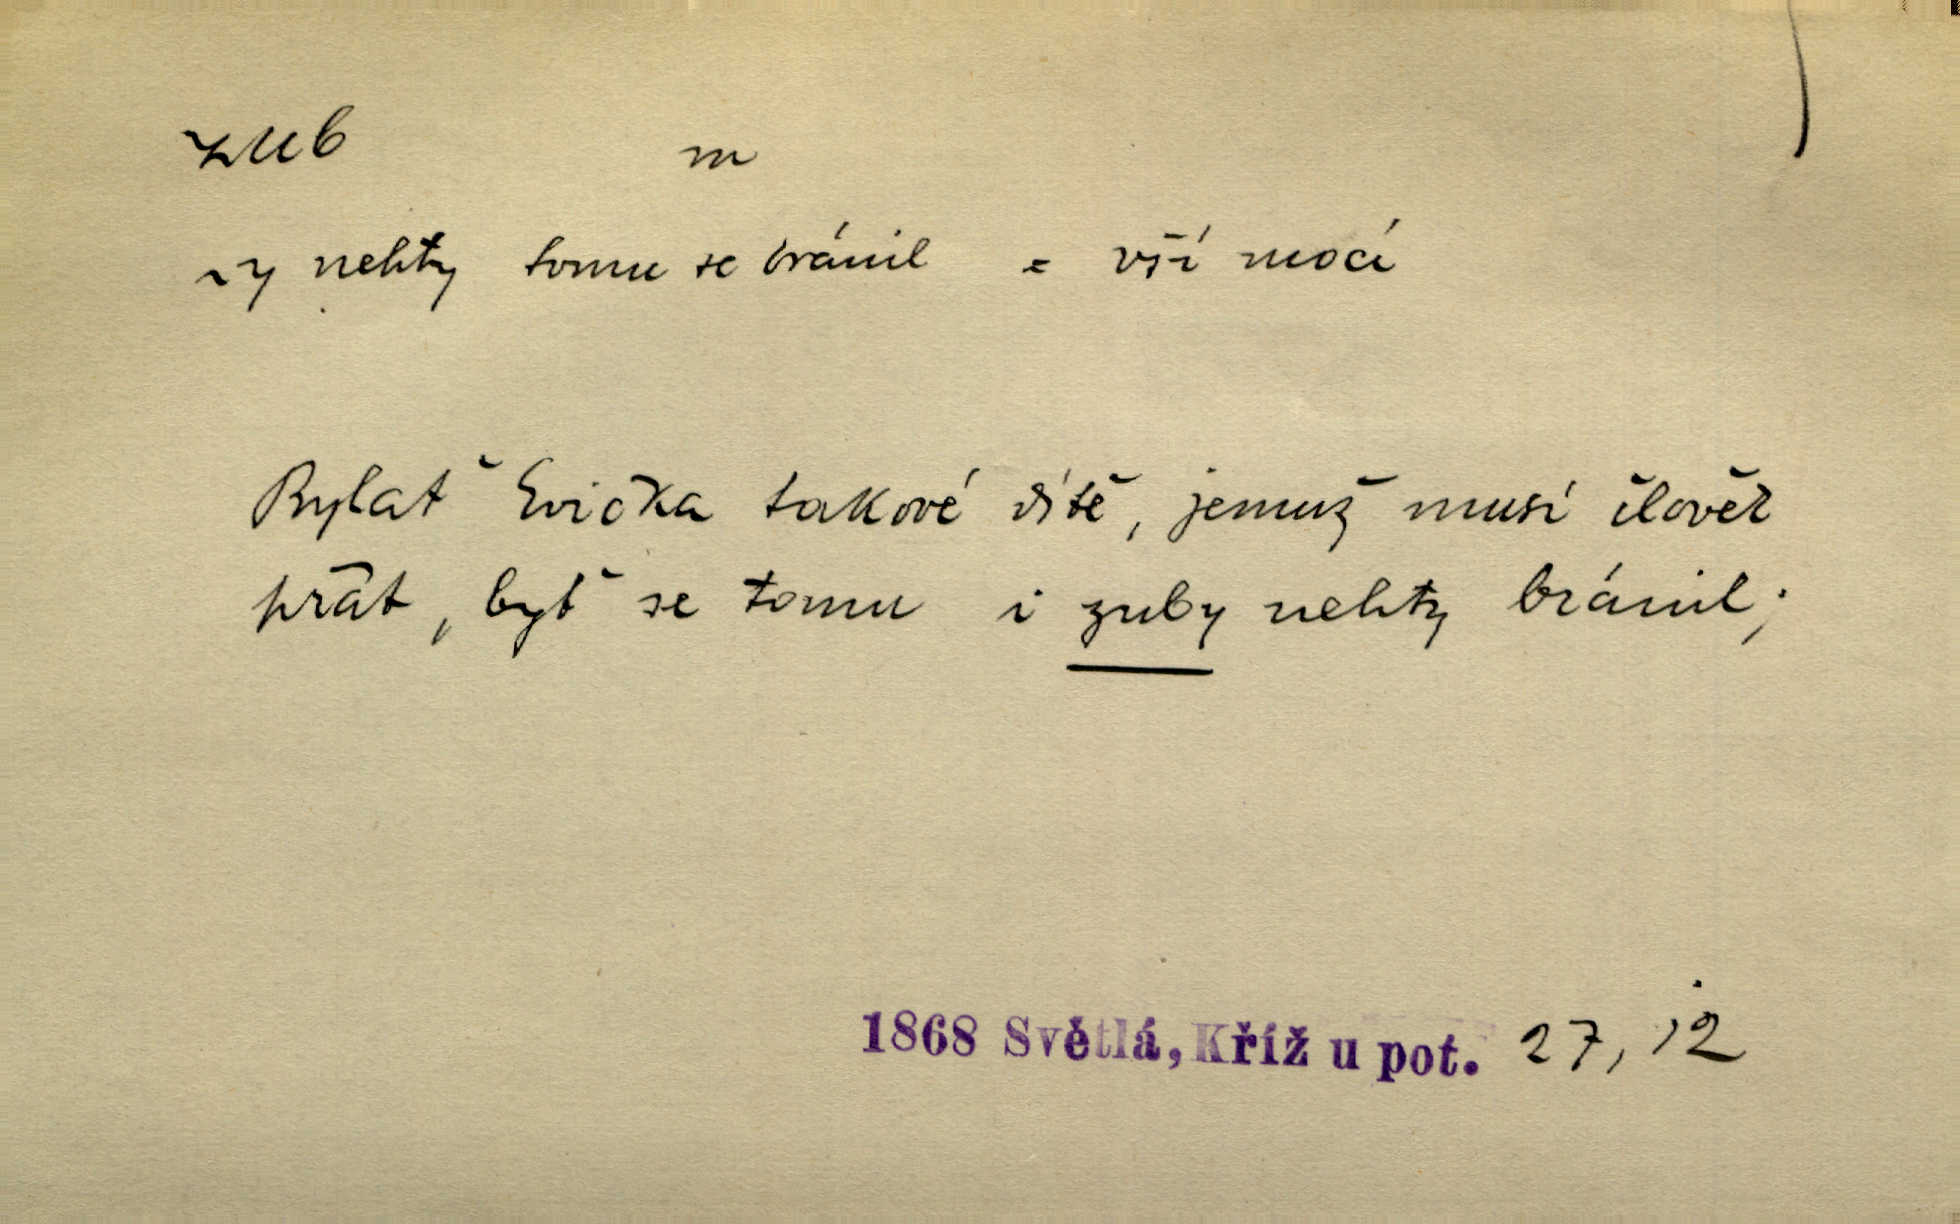 zub m
~y nehty tomu se bránil = vší mocí
Bylať Evička takové dítě, jemuž musí člověk
přát, byť se tomu i zuby nehty bránil;
1868 Světlá, Kříž u pot. 27, 12